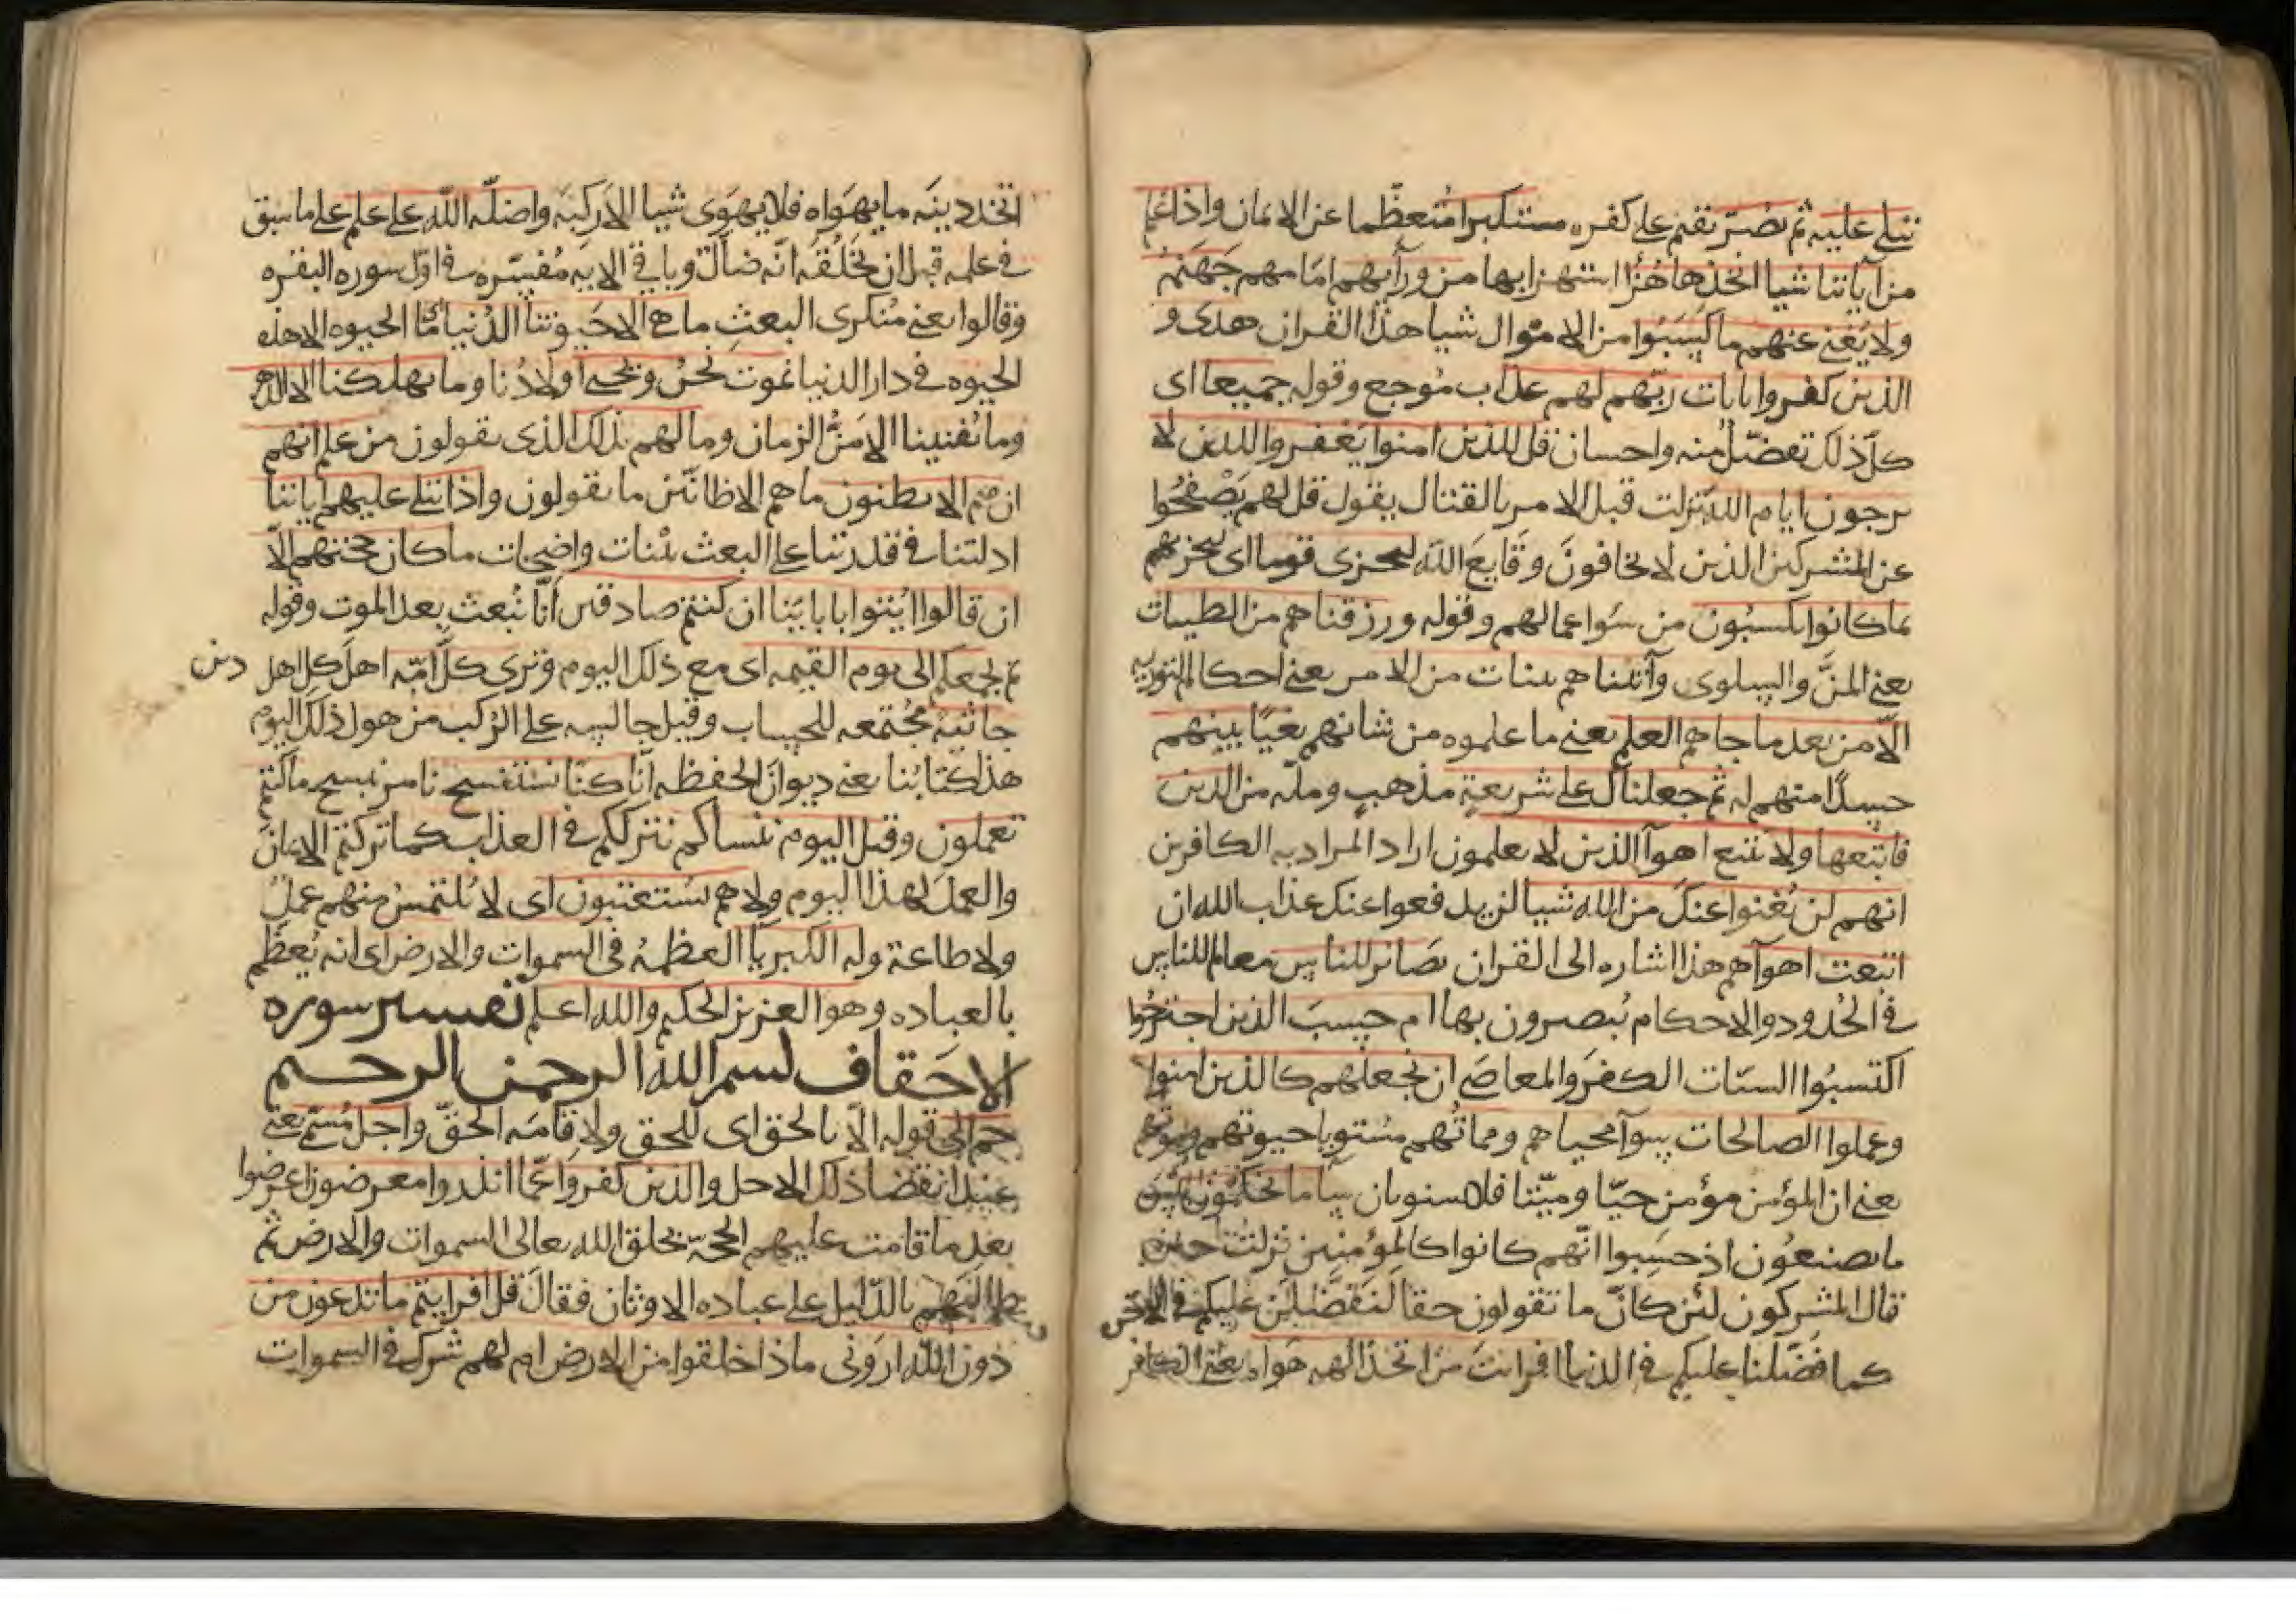 تتلى عليه ثم يصر يقيم على كفره مستكبرا متعظّما عن الايمان واذا علم
من آياتنا شيا اتخذها هُزُا استهزا بها من ورآيهم امامهم جهنم
ولا يُغنى عنهم ما كسَبُوا من الاموال شيا هذا القران هدى و
الذين كفروا بايات ربّهم لهم عذاب مُوجع وقوله جميعا اى
كلّ ذلك تفضّل منه واحسان قل للذين امنوا يغفروا للذين لا
يرجون ايام الله نزلت قبل الامر بالقتال يقول قل لهم يَصْفحُوا
عن المشركين الذين لا يخافونَ وقايعَ الله ليجزى قوما اى ليجزيهم
بما كانوا يكسبُون من سُوا عمالهم وقوله ورزقناهم من الطيبات
يعنى المنَّ والسلوى وآتيناهم بينات من الامر يعنى احكام التوريه
الّا من بعد ما جاهم العلم يعنى ما علموه من شانهم بغيًا بينهم
حسدًا منهم له ثم جعلناك على شريعةٍ مذهبٍ وملّه من الدين
فاتبعها ولا تتبع اهوآ الذين لا يعلمون اراد المراد به الكافرين
انهم لن يُغنوا عنكَ من الله شيا لن يدفعوا عنك عذاب الله ان
اتبعت اهوآهم هذا اشاره الى القران بصائر للناس معالم للناس
فى الحُدود والاحكام يُبصرون بها ام حسِبَ الذين اجترحُوا
اكتسبُوا السيّات الكفرَ والمعاصى ان نجعلهم كالذين امنوا
وعملوا الصالحات سوآ محياهم ومماتُهم مُستويا حيوتهم وموتهم
يعنى ان المؤمن مؤمن حيّا وميّتا فلا يستويان سآ ما يحكمُون بيس
ما يصنعُون اذ حسِبوا انّهم كانوا كالمؤمنين نزلت حين
قال المشركون لئن كانَ ما تقولون حقا لنفضّلين عليكم فى الاخره
كما فضّلنا عليكم فى الدنيا افرايتَ من اتخذ الهه هَواه يعنى الكافر
اتخذ دينَه ما يهوَاه فلا يهوَى شيا الا ركبَه واضلّه الله على علم على ما سبق
فى علمه قبل ان يخلُقَه انّه ضالّ وباقى الايه مُفسّره فى اوّل سوره البقره
وقالوا يعنى مُنكرى البعثِ ما هى الا حَيوتنا الدُنيا ما الحيوه الا هذه
الحيوه فى دار الدنيا نموت نحنُ ونحيى اولادُنا وما يهلكنا الا الدهر
وما يُفنينا الا مَرُّ الزمان وما لهم بذلك الذى يقولون من علم انهم
ان هم الا يظنون ما هم الا ظانّين ما يقولون واذا تتلى عليهم اياتنا
ادلتنا فى قدرتنا على البعث بيّنات واضحات ما كان حجتهم الّا
ان قالوا ايْتوا بابايَنا ان كنتم صادقين انّا نُبعث بعد الموت وقوله
ثم يجمعكم الى يوم القيمه اى مع ذلك اليوم وترى كلّ امّه اهلَ كل اهل دين
جاثيَة مجُتمعه للحساب وقيل جالسه على الرُكب من هول ذلك اليوم
هذا كتابُنا يعنى ديوانَ الحفظه انّا كنّا نستنسخ نامر بنسخ ما كنتم
تعملون وقيل اليوم ننساكم نتركُكم فى العذاب كما تركتم الايمانَ
والعملَ لهذا اليوم ولا هم يُستعتبون اى لا يُلتمسُ منهم عملٌ
ولا طاعة وله الكبريآ العظمهُ فى السموات والارض اى انه يُعظّم
بالعباده وهو العزيز الحكيم والله اعلم تفسير سوره
الاحقاف بسم الله الرحمن الرحيم
حم الى قوله الّا بالحق اى للحق ولاقامَه الحقّ واجل مُسمّى يعنى
عند انقضا ذلك الاجل والذين كفروا عمّا انذروا معرضون اعرضوا
بعد ما قامت عليهم الحجّه بخلق الله تعالى السموات والارض ثم
طالبهم بالدّليل على عباده الاوثان فقالَ قل افرايتم ما تدعون من
دون الله ارَونى ماذا خلقوا من الارض ام لهم شرك فى السموات